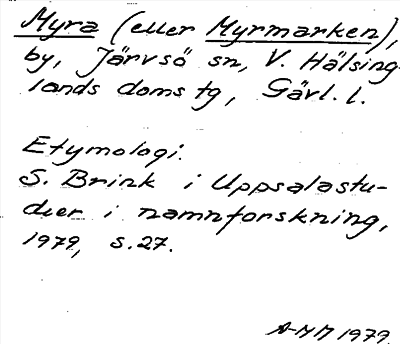 Myra (eller Myrmarken),
by, Järvsö sn, V. Hälsing-
lands doms tg, Gävl. l.
Etymologi:
S. Brink i Uppsalastu-
dier i namnforskning,
1979, s. 27.
AMM 1979